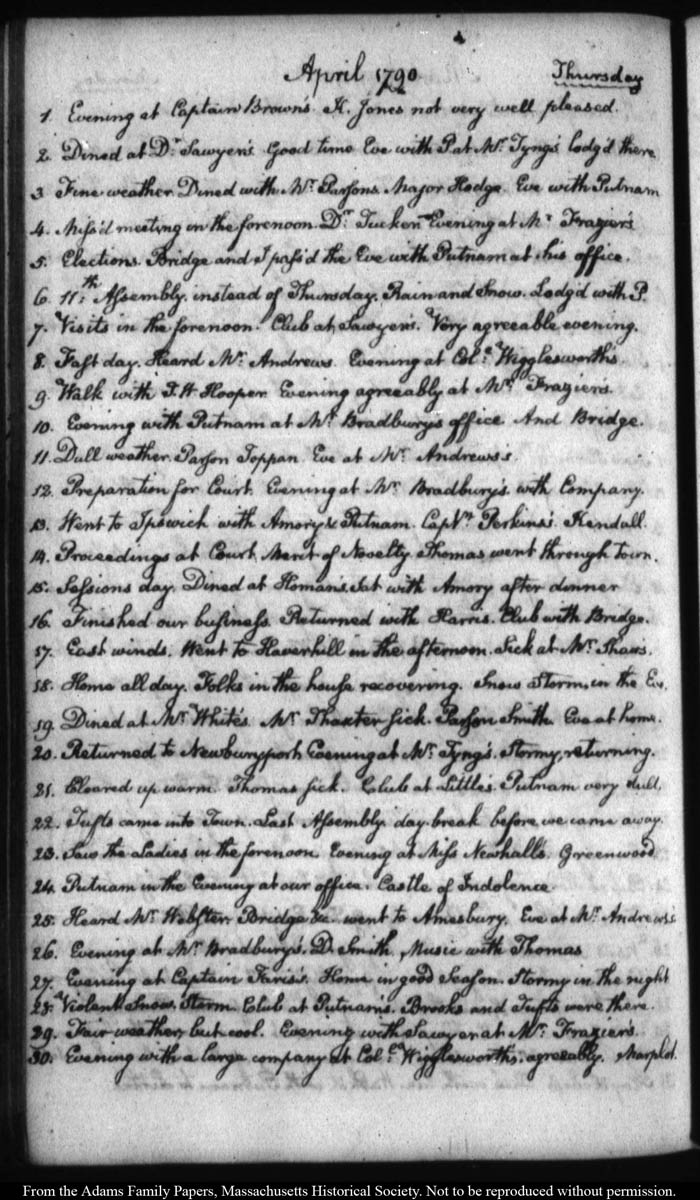 April 1790 Thursday
1. Evening at Captain Brown's. H. Jones not very well pleased.
2. Dined at Dr. Sawyer's. Good time Eve with Pat Mr. Tyng's lodg'd there
3 Fine weather. Dined with Mr. Parsons. Major Hodge. Eve with Putnam
4. Miss'd meeting in the forenoon. Dr. Tucker. Evening at Mr. Frazier's
5. Elections. Bridge and I pass'd the Eve with Putnam at his office.
6. 11th: Assembly, instead of Thursday. Rain and Snow. Lodg'd with P.
7. Visits in the forenoon. Club at Sawyer's. Very agreeable evening.
8. Fast day. Heard Mr. Andrews. Evening at Coll. Wigglesworth's
9. Walk with J. H Hooper. Evening agreeably at Mrs. Frazier's.
10. Evening with Putnam at Mr. Bradbury's office And Bridge.
11. Dull weather. Parson Toppan. Eve at Mr. Andrews's
12. Preparation for Court. Evening at Mr. Bradbury's with Company.
13. Went to Ipswich with Amory & Putnam. Captn. Perkins's. Kendall.
14. Proceedings at Court. Merit of Novelty. Thomas went through Town.
15. Sessions day. Dined at Homan's. Sat with Amory after dinner
16. Finished our business. Returned with Harris. Club with Bridge.
17. East winds. Went to Haverhill in the afternoon. Sick at Mr. Shaw's.
18. Home all day. Folks in the house recovering. Snow Storm, in the Eve.
19. Dined at Mr. White's. Mr. Thaxter sick. Parson Smith. Eve at home.
20. Returned to Newburyport. Evening at Mr. Tyng's. Stormy, returning.
21. Cleared up warm. Thomas sick. Club at Little's. Putnam very dull.
22. Tufts came into Town. Last Assembly. day-break before we came away.
23. Saw the Ladies in the forenoon. Evening at Miss Newhall's. Greenwood
24. Putnam in the Evening at our office. Castle of Indolence
25. Heard Mr. Webster. Bridge &c. went to Amesbury. Eve at Mr. Andrews's
26. Evening at Mr. Bradbury's. D. Smith. Music with Thomas
27. Evening at Captain Faris's. Home in good Season. Stormy in the night
28. Violent Snow Storm. Club at Putnam's. Brooks and Tufts were there.
29. Fair weather, but cool. Evening with Sawyer at Mr. Frazier's.
30. Evening with a large company at Coll. Wigglesworth's; agreeably. Marplot.
From the Adams Family Papers, Massachusetts Historical Society. Not to be reproduced without permission.